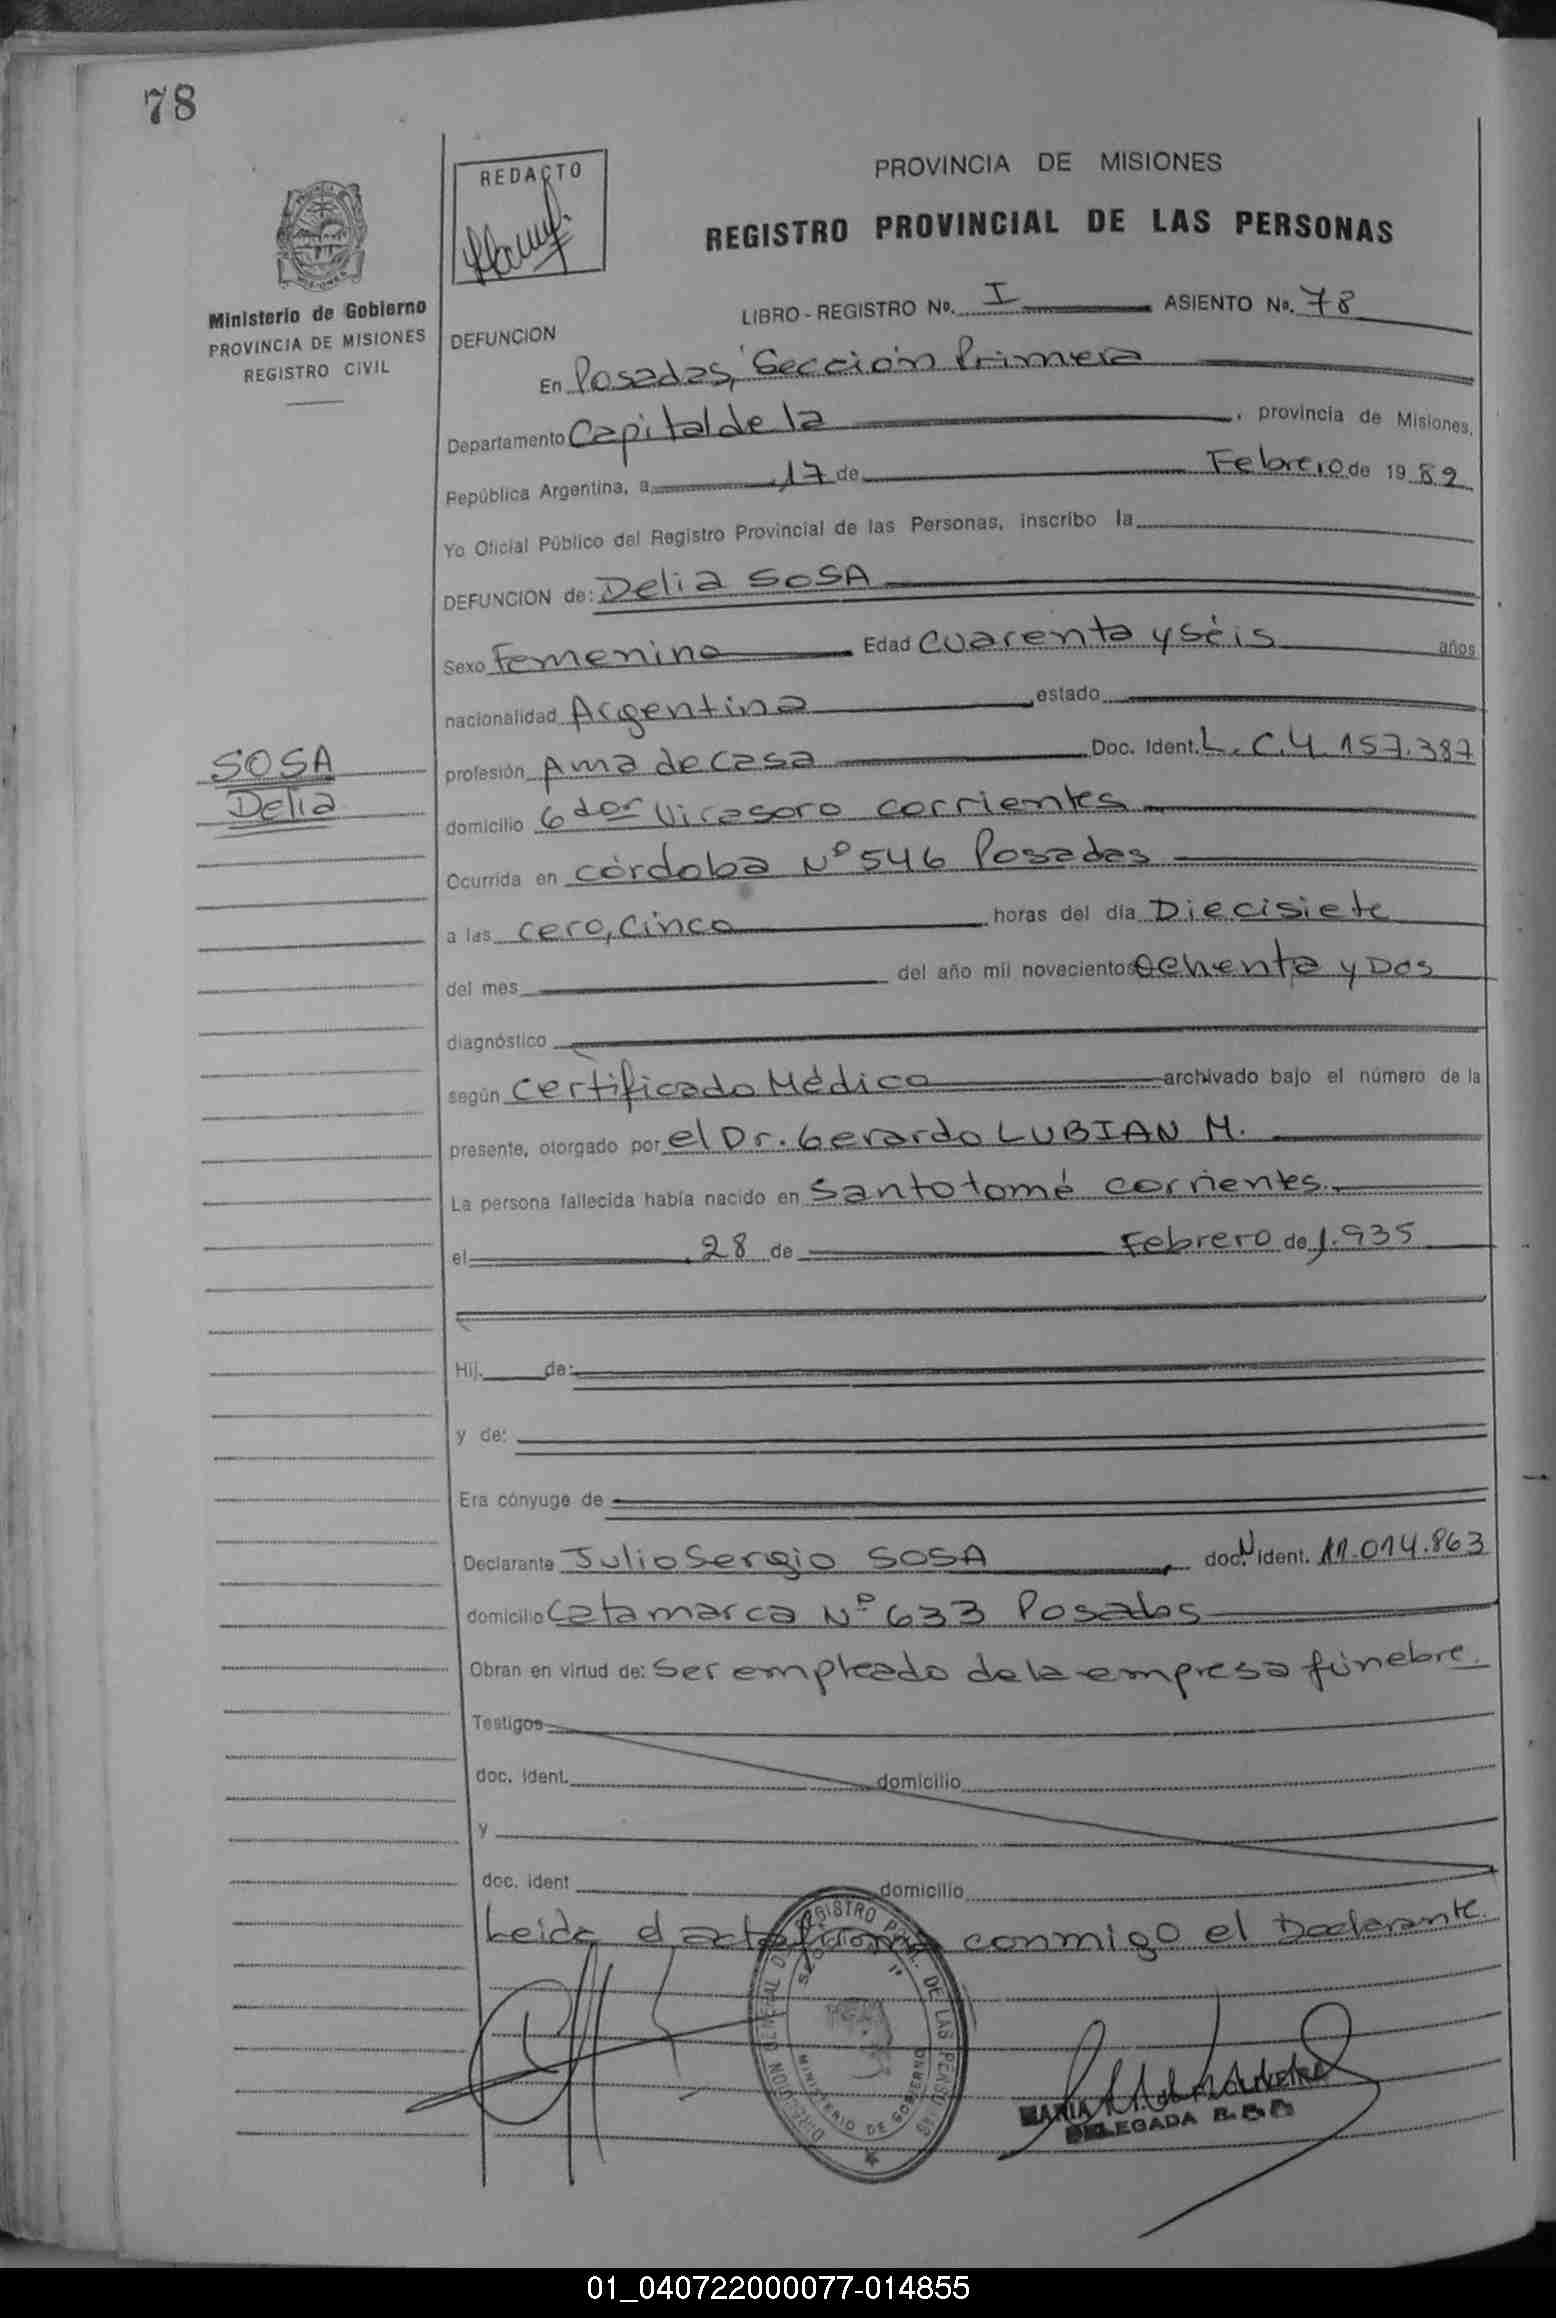 78
REDACTO
PROVINCIA DE MISIONES
REGISTRO PROVINCIAL DE LAS PERSONAS
Ministerio de Gobierno
PROVINCIA DE MISIONES
REGISTRO CIVIL
LIBRO - REGISTRO No. I ASIENTO No. 78
DEFUNCION
En Posadas, Sección Primera
Departamento Capital de la , provincia de Misiones,
República Argentina, a 17 de Febrero de 1982
Yo Oficial Público del Registro Provincial de las Personas, inscribo la
DEFUNCION de: Delia SOSA
Sexo Femenino Edad cuarenta y séis años
nacionalidad Argentina , estado
SOSA
Delia
profesión Ama de casa Doc. Ident. L.C.4.157.387
domicilio Gdor Virasoro corrientes
Ocurrida en córdoba Nº 546 Posadas
a las cero, cinco horas del día Diecisiete
del mes del año mil novecientos ochenta y Dos
diagnóstico
según certificado Médico archivado bajo el número de la
presente, otorgado por el Dr. Gerardo LUBIAN M.
La persona fallecida había nacido en Santo tomé corrientes.
el 28 de Febrero de 1.935
Hij. de:
y de:
Era cónyuge de
Declarante Julio Sergio SOSA , doc. N ident. 11.014.863
domicilio Catamarca Nº 633 Posadas
Obran en virtud de: Ser empleado de la empresa fúnebre.
Testigos
doc. ident. domicilio
y
doc. ident domicilio
Leida el acta firma conmigo el Declarante.
DIRECCION GENERAL DEL REGISTRO PCIAL. DE LAS PERSONAS
MINISTERIO DE GOBIERNO
MARIA
DELEGADA
01_040722000077-014855